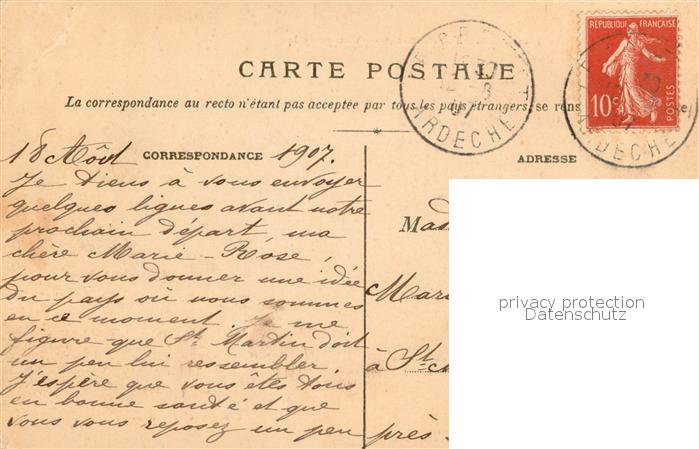 CARTE POSTALE
La correspondance au recto n'étant pas acceptée par tous les pays étrangers, se rens
RÉPUBLIQUE FRANÇAISE
10c
POSTES
ARDECHE
ARDECHE
CORRESPONDANCE
ADRESSE
18 Aôut 1907.
Je tiens à vous envoyer
quelques lignes avant notre
prochain départ, ma
chère Marie-Rose,
pour vous donner une idée
du pays où nous sommes
en ce moment. Je me
figure que St Martin doit
un peu lui ressembler.
J'espère que vous êtes tous
en bonne santé et que
vous vous reposez un peu
Mad
Mar
à St
près
privacy protection
Datenschutz